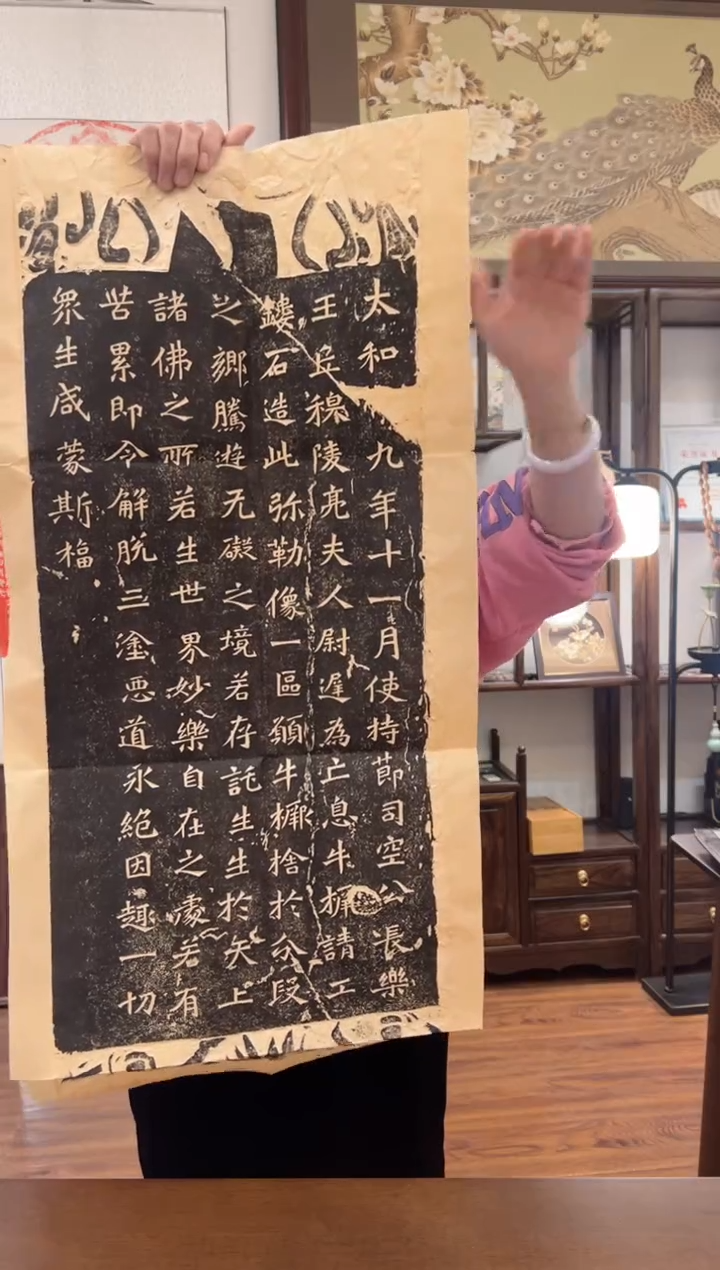 太和九年十一月使持節司空公長樂
王丘穆陵亮夫人尉遲為亡息牛橛請工
鏤石造此弥勒像一區願牛橛捨於分段
之鄉騰遊无礙之境若存託生生於天上
諸佛之所若生世界妙樂自在之處若有
苦累即令解脱三塗悪道永絕因趣一切
眾生咸蒙斯福